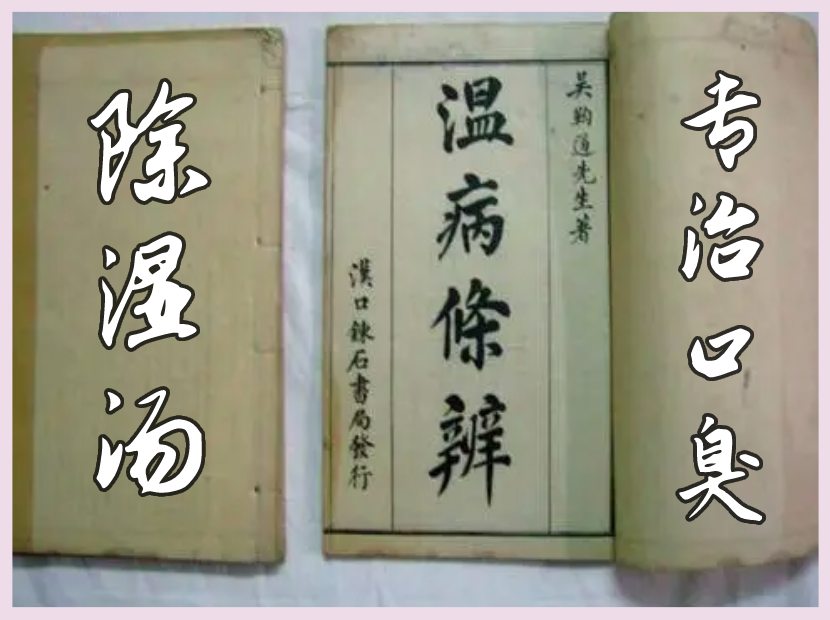 除湿汤
吴鞠通先生著
温病條辨
漢口鍊石書局發行
专治口臭